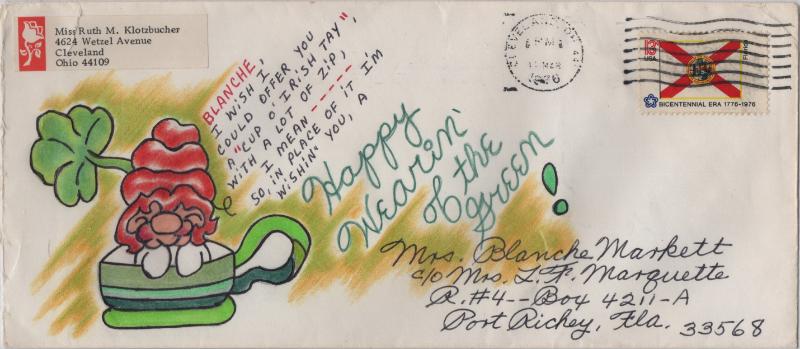 Miss Ruth M. Klotzbucher
4624 Wetzel Avenue
Cleveland
Ohio 44109
BLANCHE,
I WISH I
COULD OFFER YOU
A "CUP O' IRISH TAY",
WITH A LOT OF ZIP,
I MEAN -----
SO, IN PLACE OF IT I'M
WISHIN' YOU, A
Happy
Wearin'
of the
Green!
CLEVELAND, OH 441
PM
MAR
1976
13c
USA
Florida
BICENTENNIAL ERA 1776-1976
Mrs. Blanche Markett
c/o Mrs. L. F. Marquette
R.#4--Box 4211-A
Port Richey, Fla. 33568